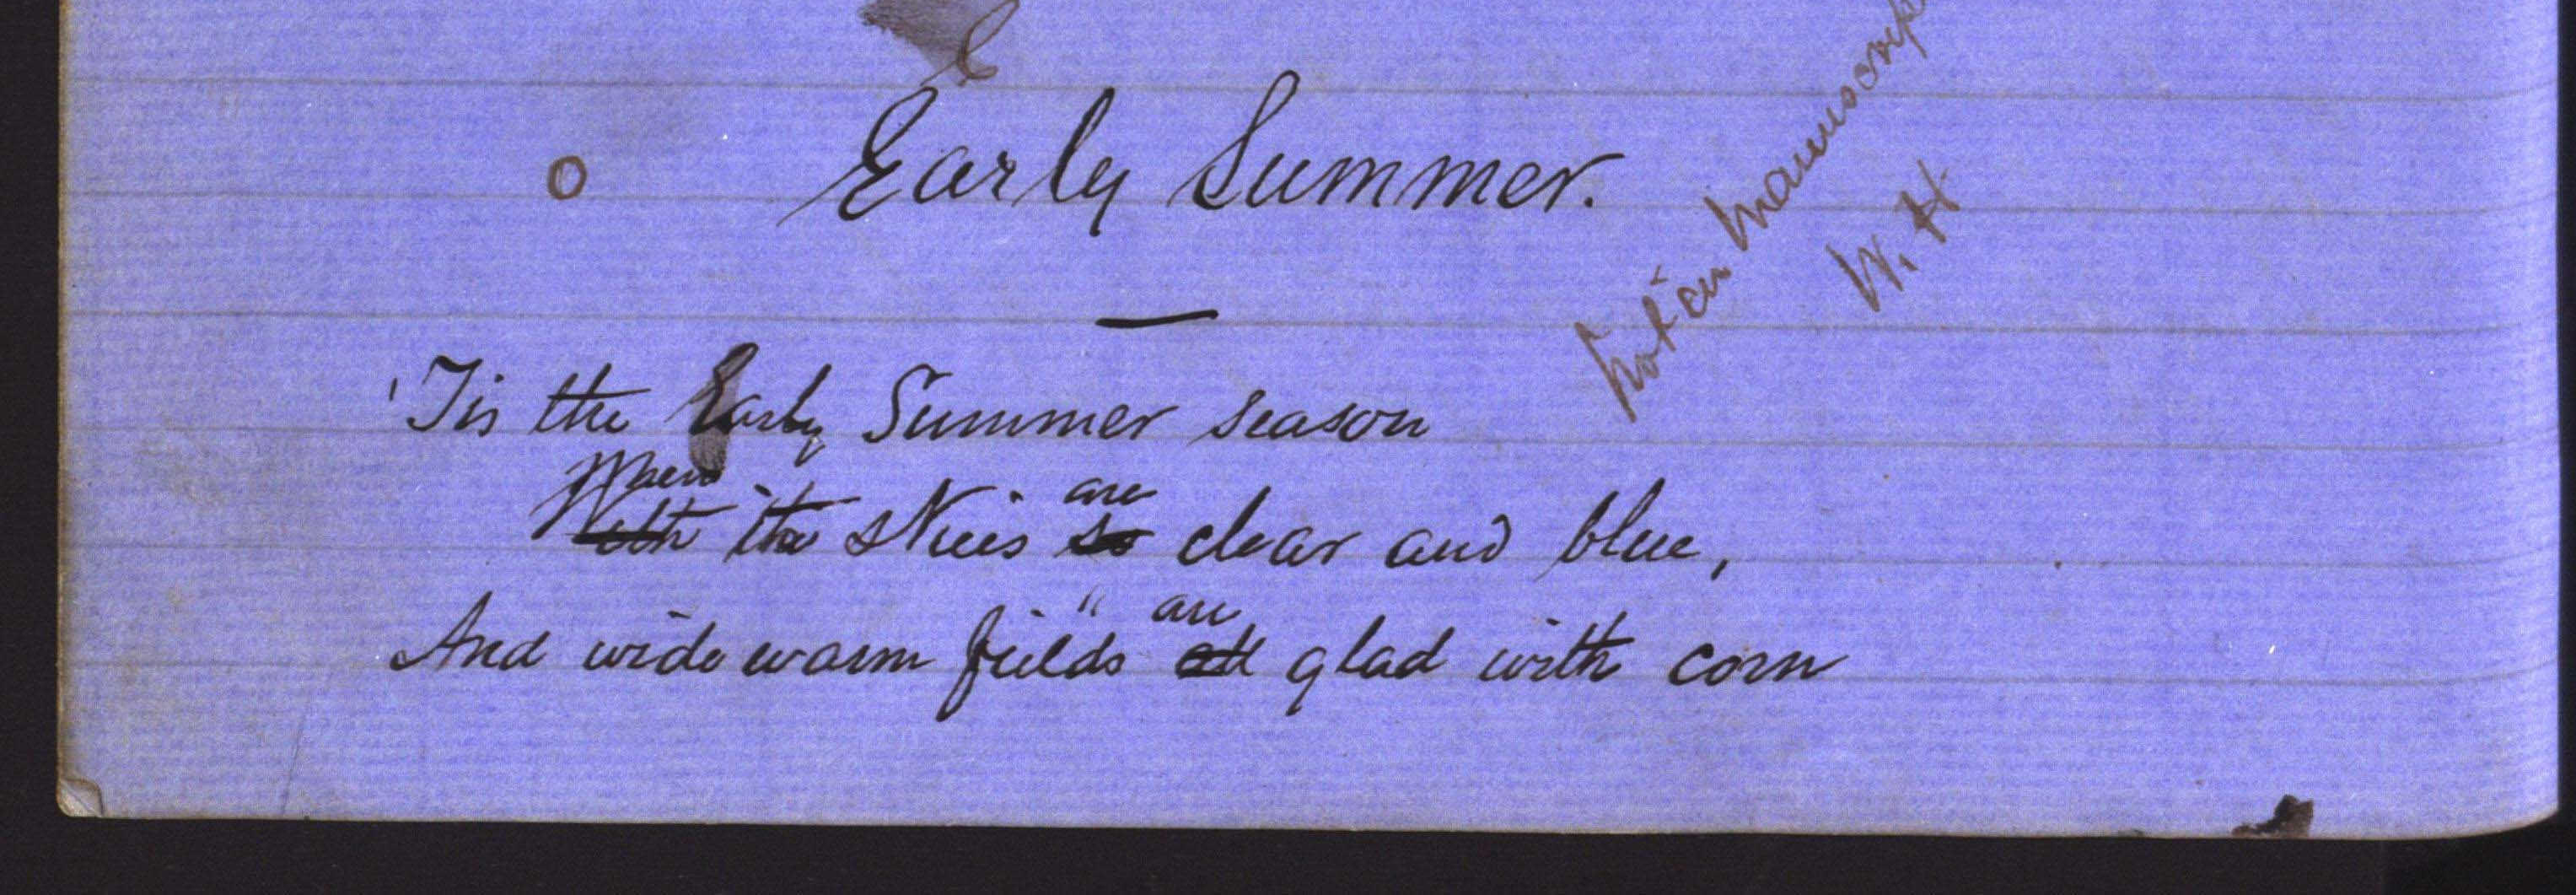 Early Summer.
not in manuscript
W. H.
'Tis the Early Summer season
When
With the skies so are clear and blue,
And wide warm fields all are glad with corn